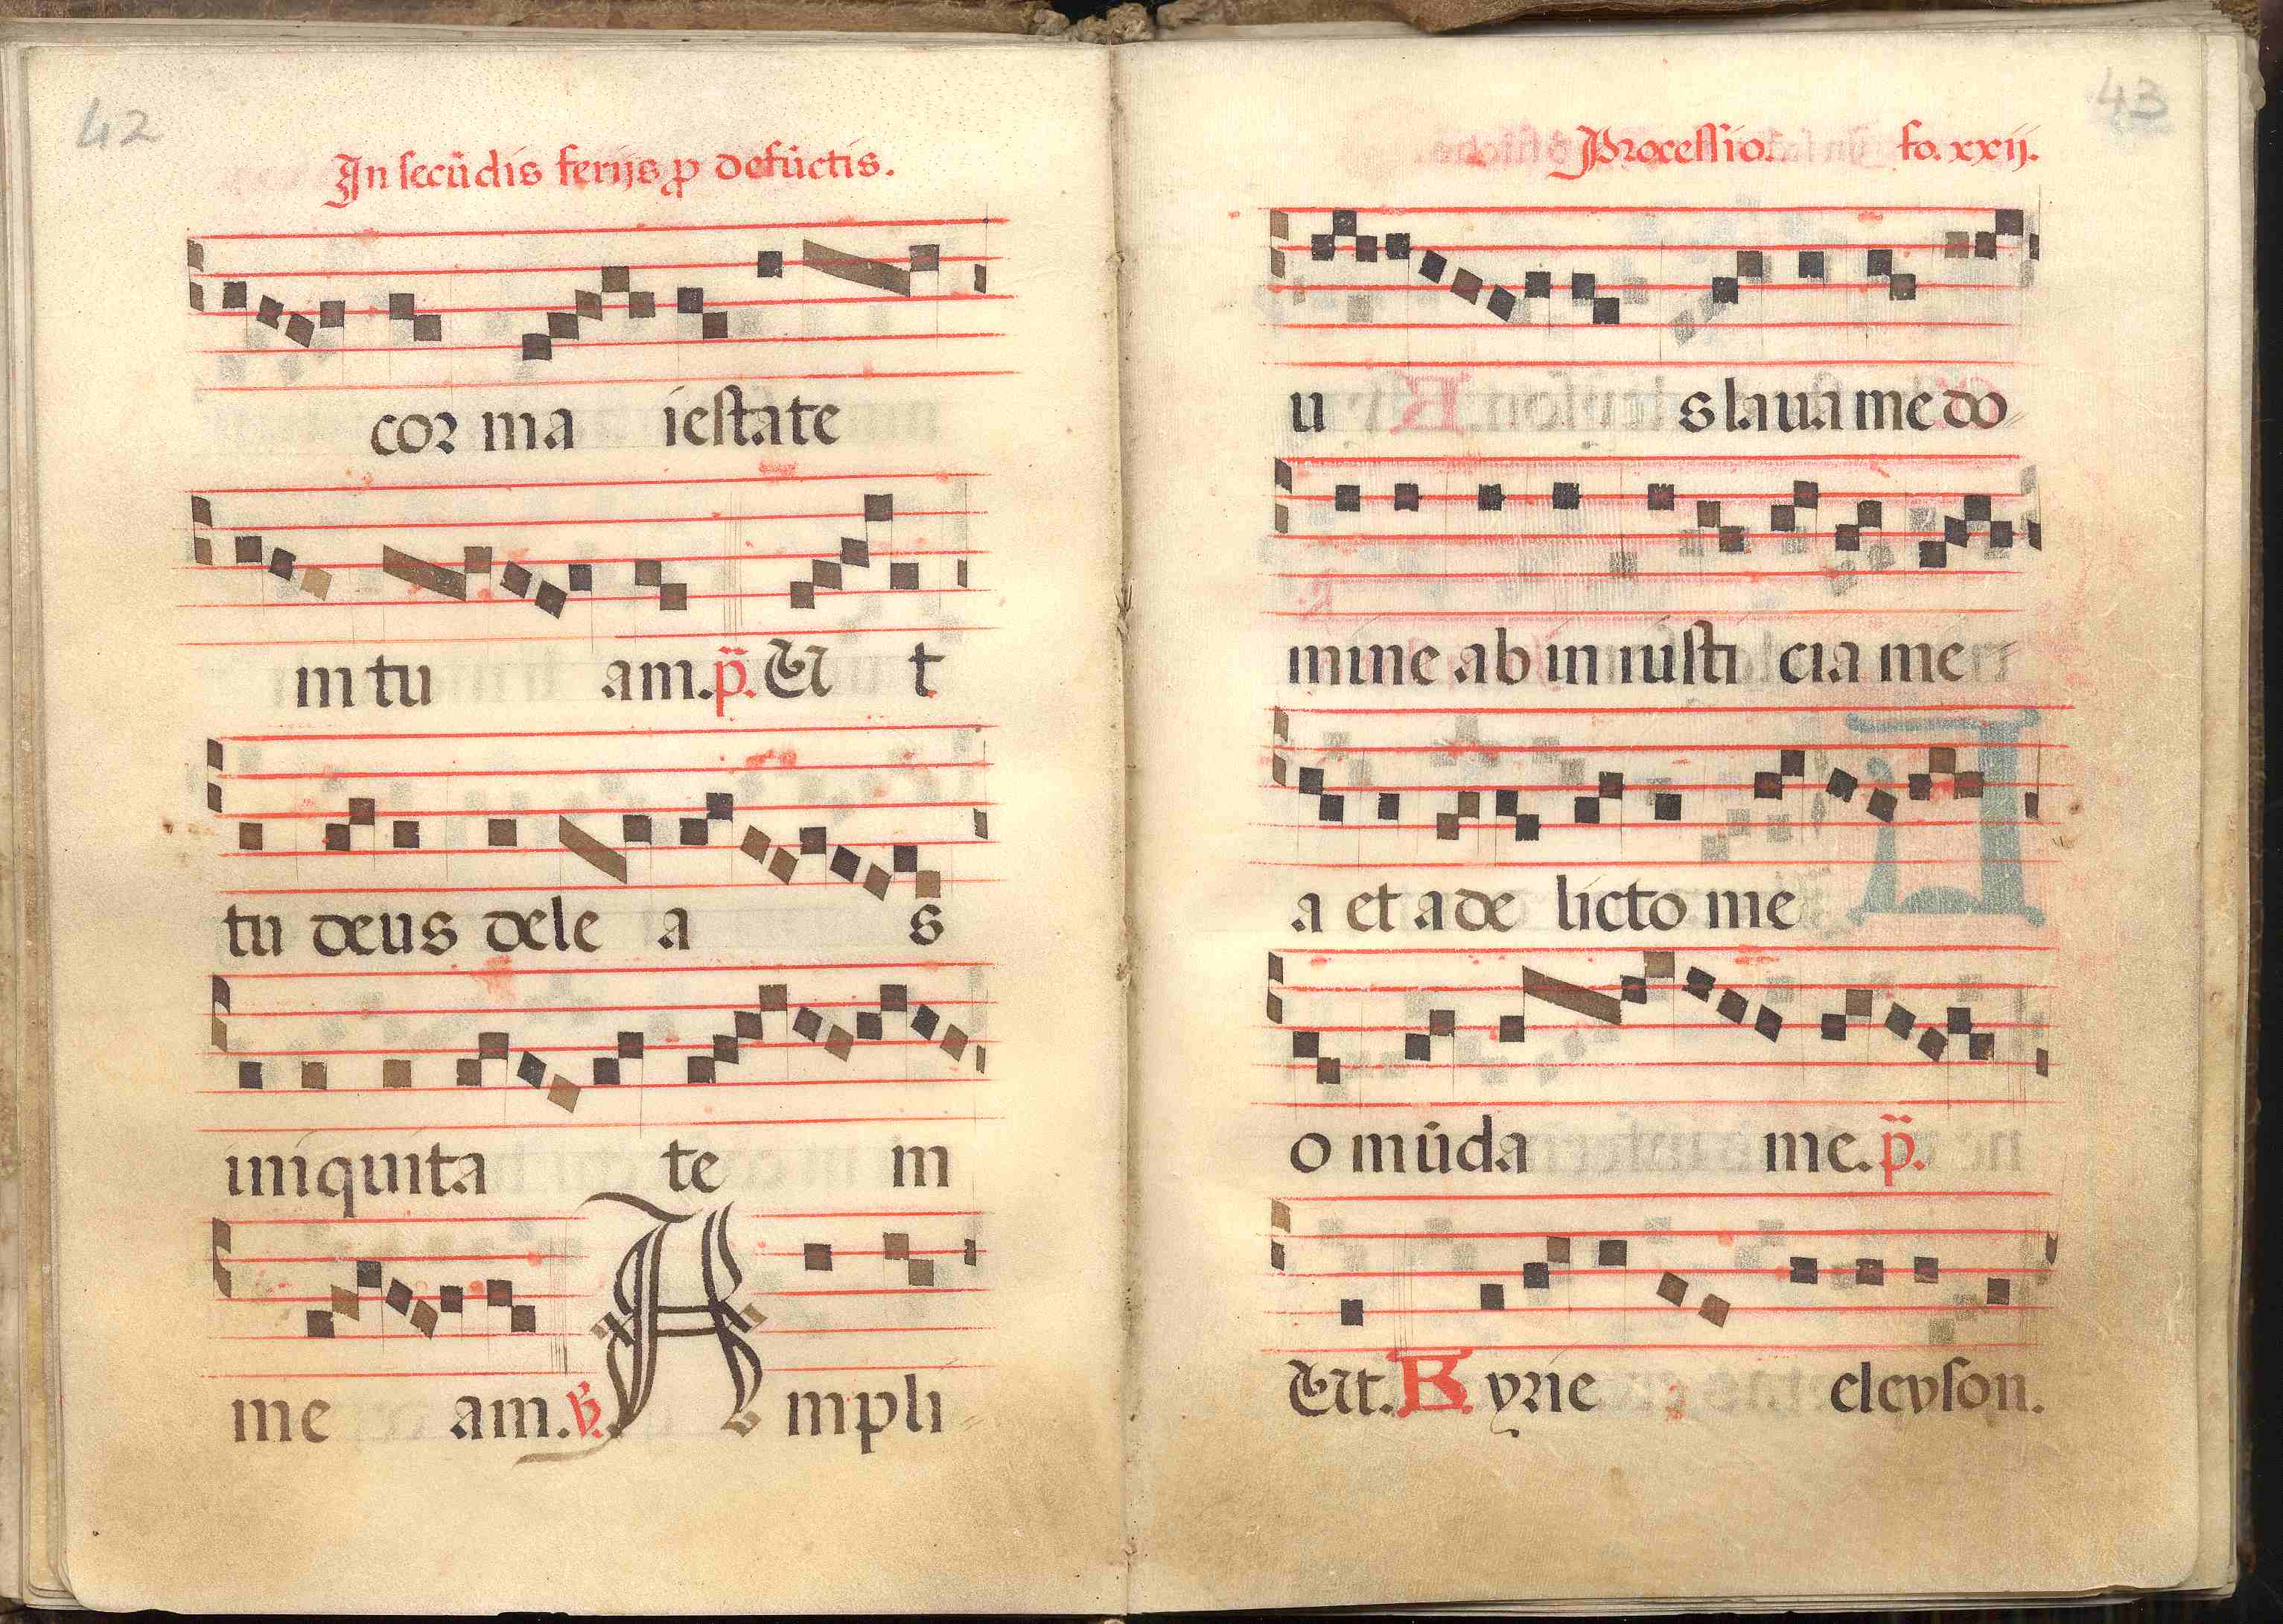 42
In secūdis ferijs ꝓ defūctis.
cor ma iestate
m tu am. p̄. Ut
tu deus dele a s
iniquita te m
me am. ℣. Ampli
43
Processio. fo. xxij.
u s laua me do
mine ab in iusti cia me
a et a de licto me
o mūda me. p̄.
Ut. Kyrie eleyson.